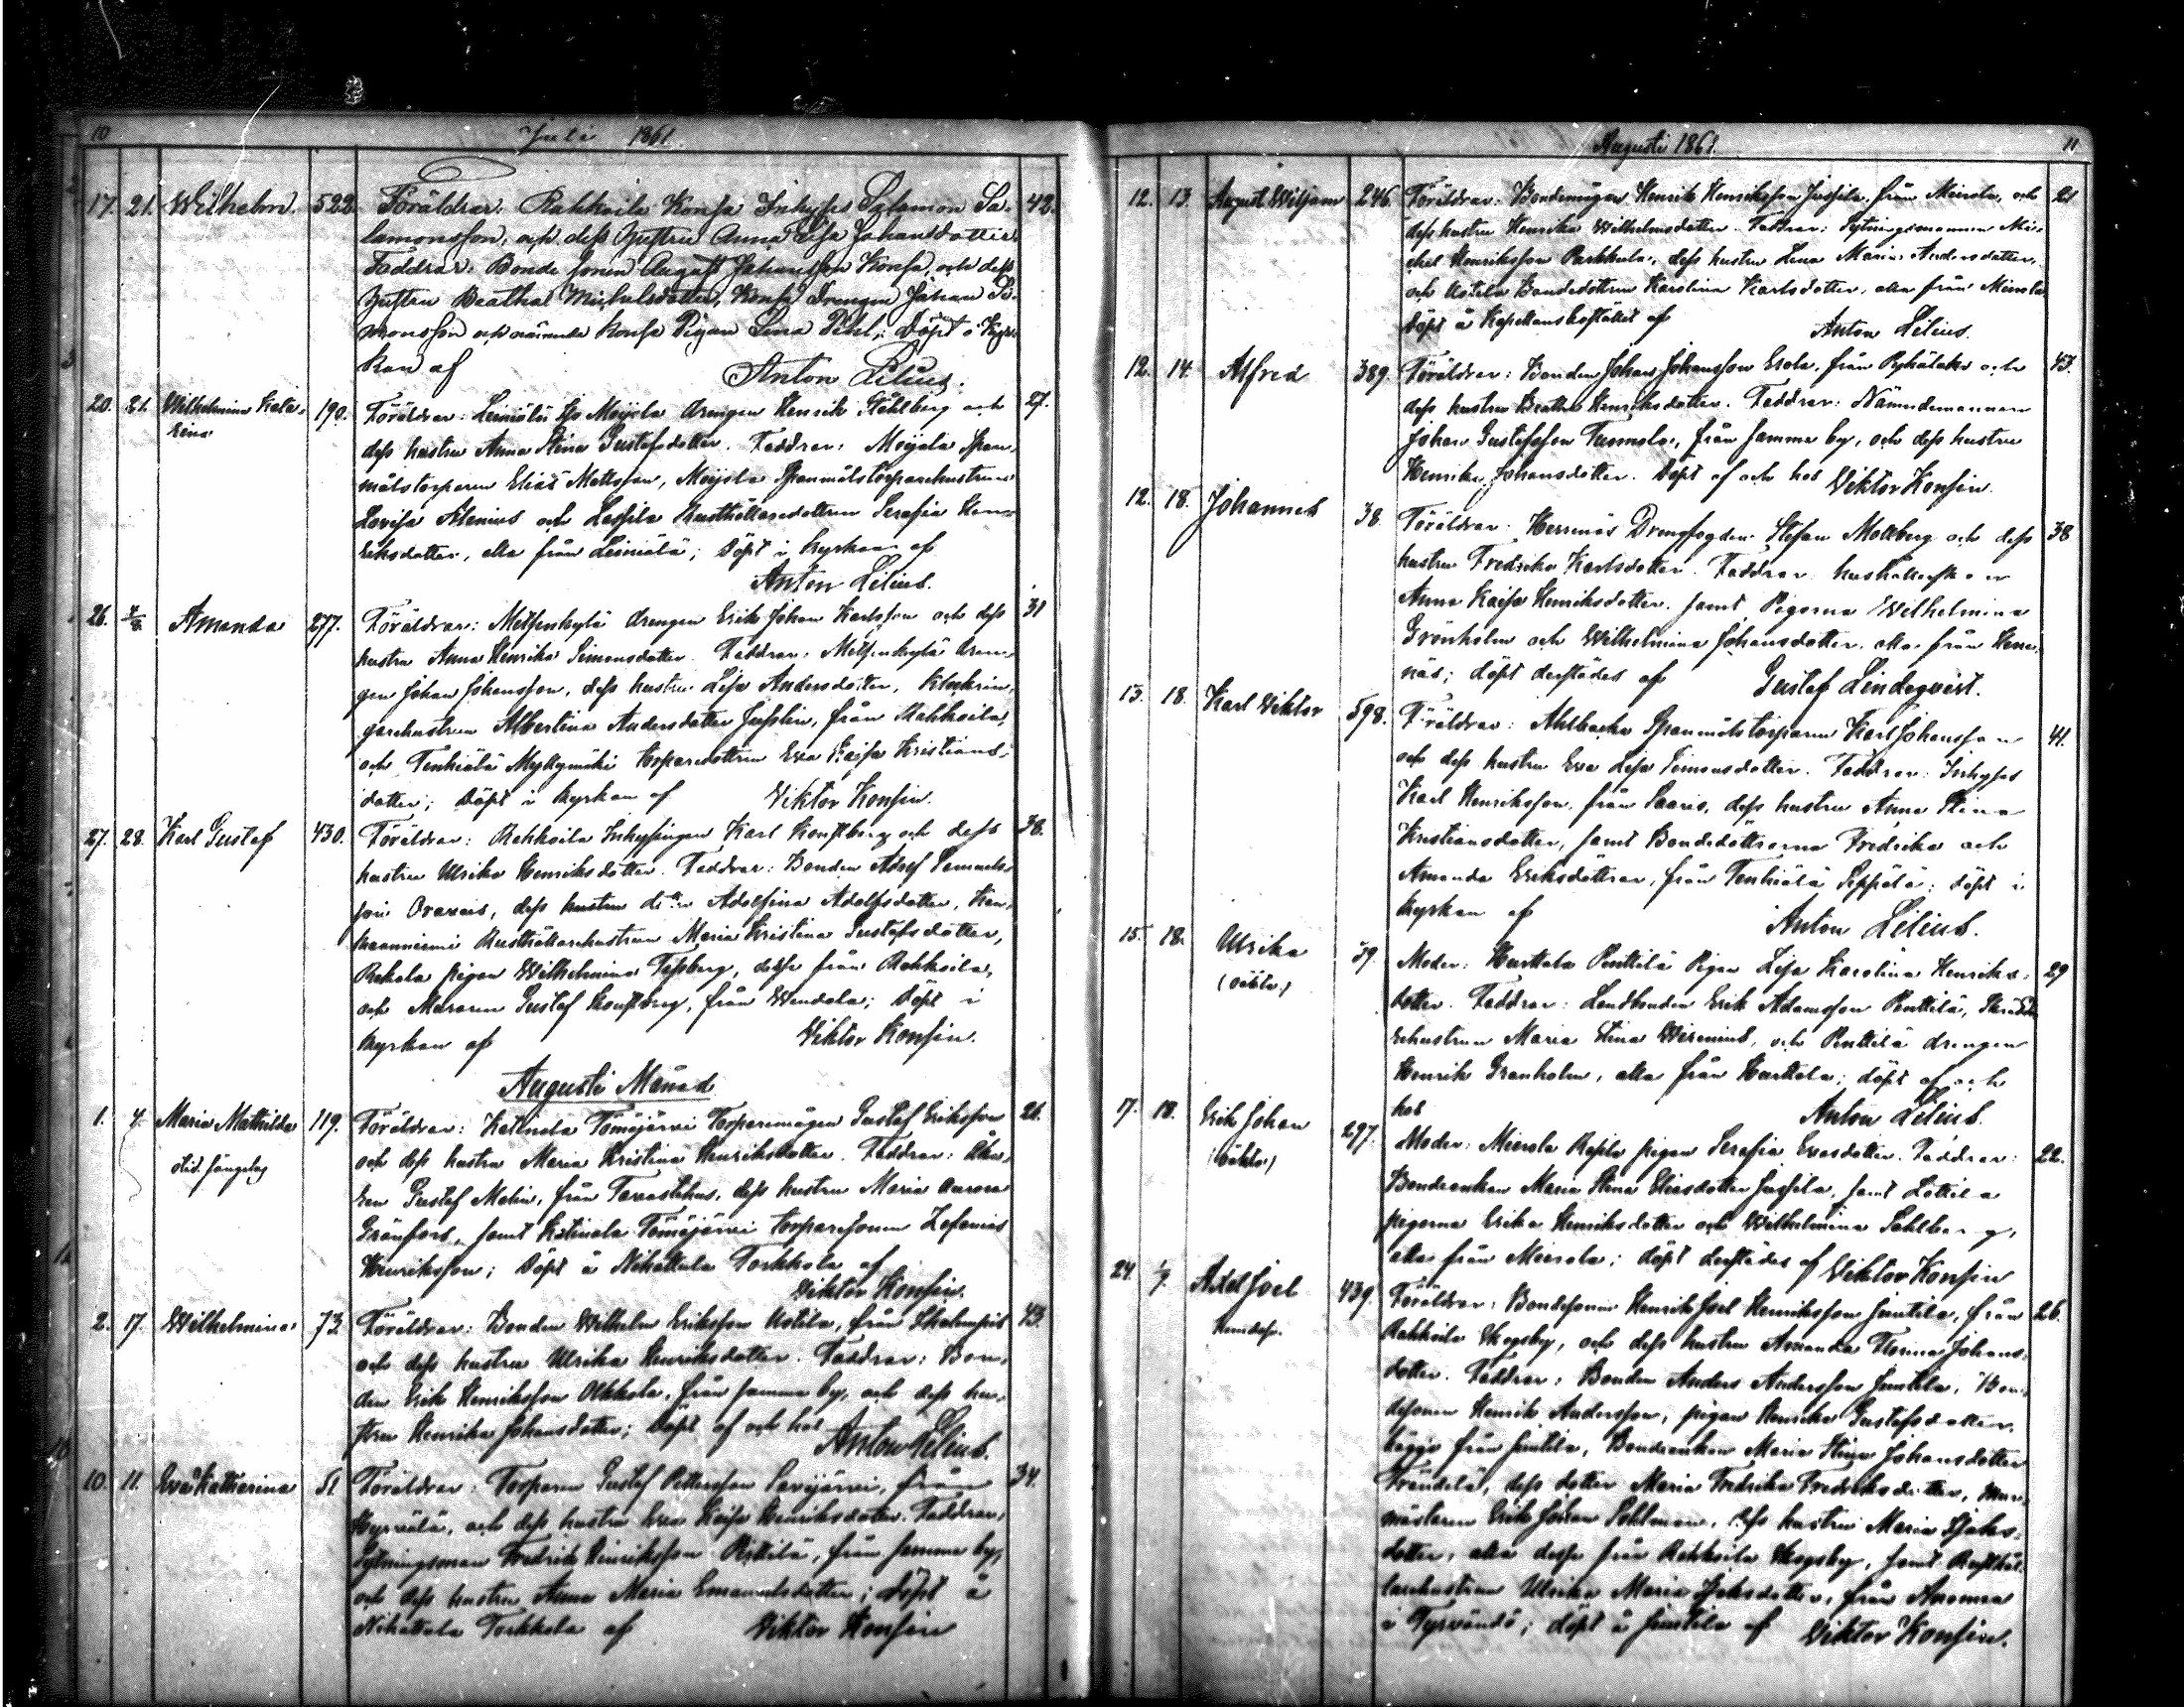 10 Juli 1861.
17. 21. Wilhelm. 522. Föräldrar: Rahkoila Konsa Inhyses Salomon Sa- 42.
lomonsson, och dess Hustru Anna Lisa Johansdotter.
Faddrar: Bonde sonen August Johansson Konsa, och dess
Hustru Beatha Michelsdotter, Konsa Drengen Johan Si-
monsson och nämnda Konsa Pigan Lena Pihl; Döpt i Kyr-
kan af Anton Lilius.
20. 21. Wilhelmina Kata- 190. Föräldrar: Leiniälä Moijsla drengen Henrik Ståhlberg och 27.
rina dess hustru Anna Stina Gustafsdotter. Faddrar: Moijsla Span-
målstorparen Elias Mattsson, Moijsla Spanmålstorparehustrun
Lovisa Alenius och Lassila Rusthållaredottren Serafia Hen-
riksdotter, alla från Leiniälä; Döpt i kyrkan af
Anton Lilius.
26. 4/8. Amanda 277. Föräldrar: Metsenkylä drengen Erik Johan Karlsson och dess 31
hustru Anna Henrika Simonsdotter. Faddrar: Metsenkylä dren-
gen Johan Johansson, dess hustru Lisa Andersdotter, Klockrin-
garehustrun Albertina Andersdotter Jusslin, från Rahkoila,
och Tenhiälä Myllymäki torparedottren Eva Kaisa Kristians-
dotter; Döpt i kyrkan af Viktor Konsin.
27. 28. Karl Gustaf 430. Föräldrar: Rahkoila Inhysingen Karl Konstberg och dess 38.
hustru Ulrika Henriksdotter. Faddrar: Bonden Adolf Samuels-
son Oravais, dess hustru Adolfina Adolfsdotter,
Rusthållarehustrun Maria Kristina Gustafsdotter,
Rekola pigan Wilhelmina Forsberg, dessa från Rahkoila,
och Muraren Gustaf Konstberg, från Wendola; Döpt i
kyrkan af Viktor Konsin.
Augusti Månad
1. 4. Maria Mathilda 119. Föräldrar: Katinala Tömäjärvi Torparemågen Gustaf Eriksson 21.
och dess hustru Maria Kristina Henriksdotter. Faddrar: Åka-
ren Gustaf Malin, från Tavastehus, dess hustru Maria Aurora
Granfors, samt Katinala Tömäjärvi torparesonen Zefanias
Henriksson; Döpt å Nihattula Torkkola af
Viktor Konsin.
2. 17. Wilhelmina 73. Föräldrar: Bonden Wilhelm Eriksson Uotila, från Ihalempis 43.
och dess hustru Ulrika Henriksdotter. Faddrar: Bon-
den Erik Henriksson Ollkkola, från samma by, och dess hu-
stru Henrika Johansdotter; Döpt af och hos
Anton Lilius.
10. 11. Eva Katharina 51 Föräldrar: Torparen Gustaf Pettersson Savijärvi, från 34.
Hyrvälä, och dess hustru Eva Kaisa Henriksdotter. Faddrar:
Sytningsman Fredrik Henriksson Pittilä, från samma by,
och dess hustru Anna Maria Emanuelsdotter; döpt å
Nihattula Torkkola af Viktor Konsin
Augusti 1861. 11
12. 13. August Wiljam 246. Föräldrar: Bondemågen Henrik Henriksson Jussila, från Mierola, och 21
dess hustru Henrika Wilhelmsdotter. Faddrar: Sytningsmannen Mi-
chel Henriksson Parkkula, dess hustru Lena Maria Andersdotter,
och Uotila Bondedottren Karolina Karlsdotter, alla från Mierola
Döpt å Kapellansbostället af Anton Lilius.
12. 14. Alfred 389. Föräldrar: Bonden Johan Johansson Erola, från och 43.
dess hustru Beatha Henriksdotter. Faddrar: Nämndemannen
Johan Gustafsson Tuomola, från samma by, och dess hustru
Henrika Johansdotter. Döpt af och hos Viktor Konsin.
12. 18. Johannes 38. Föräldrar: Herrnäs Drengfogden Stefan Mollberg och dess 38
hustru Fredrika Karlsdotter. Faddrar: hushållerskan
Anna Kaisa Henriksdotter, samt Pigorna Wilhelmina
Grönholm och Wilhelmina Johansdotter, alla från Herr-
näs; döpt derstädes af Gustaf Lindeqvist.
13. 18. Karl Viktor 598. Föräldrar: Ahlbacka Spanmålstorparen Karl Johansson 41.
och dess hustru Eva Lisa Simonsdotter. Faddrar: Inhyses
Karl Henriksson, från Saaris, dess hustru Anna Stina
Kristiansdotter, samt Bondedöttrarna Fredrika och
Amanda Eriksdöttrar, från Tenhiälä Seppälä; döpt i
kyrkan af Anton Lilius.
15. 18. Ulrika 39. Moder: Hurttala Penttilä Pigan Lisa Karolina Henriks- 29
(oäkta) dotter. Faddrar: Landbonden Erik Adamsson Penttilä, Skrädda-
rehustrun Maria Stina Wirenius, och Penttilä drengen
Henrik Granholm, alla från Hurttala; döpt af och
hos Anton Lilius.
17. 18. Erik Johan 297. Moder: Mierola Rapila pigan Serafia Evasdotter. Faddrar: 22.
(oäkta) Bondeenkan Maria Stina Eliasdotter Jussila, samt Lottila
pigorna Erika Henriksdotter och Wilhelmina Sahlberg,
alla från Mierola; döpt derstädes af Viktor Konsin
24. 1/9. Axel Joel 439. Föräldrar: Bondesonen Henrik Joel Henriksson Juntila, från 26.
Rahkoila Skogsby, och dess hustru Amanda Johans-
dotter. Faddrar: Bonden Anders Andersson Juntila, Bon-
desonen Henrik Andersson, pigan Henrika Gustafsdotter,
begge från Juntila, Bondeenkan Maria Stina Johansdotter
Frändilä, dess dotter Maria Fredrika Fredriksdotter, Mur-
mästaren Erik Johan Sohlman, dess hustru Maria Isaks-
dotter, alla dessa från Rahkoila Skogsby, samt Rusthål-
larehustrun Ulrika Maria Isaksdotter, från Anomaa
i Tyrvändö; döpt å Juntila af Viktor Konsin.